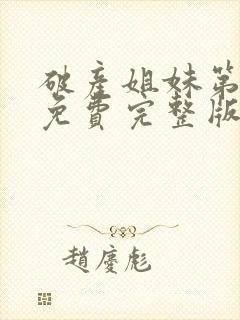 破產姐妹第
免費完整版
趙慶彪